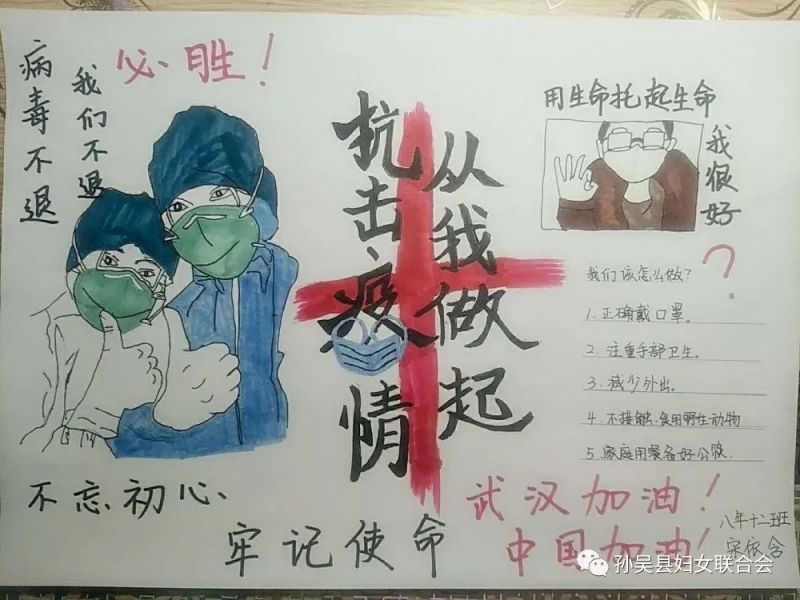 病毒不退
我们不退
必胜！
抗击疫情
从我做起
用生命托起生命
我很好
我们该怎么做？
？
1.正确戴口罩。
2.注重手部卫生。
3.减少外出。
4.不接触、食用野生动物
5.家庭用餐备好公筷.
不忘初心、
牢记使命
武汉加油！
中国加油！
八年十二班
宋依含
孙吴县妇女联合会